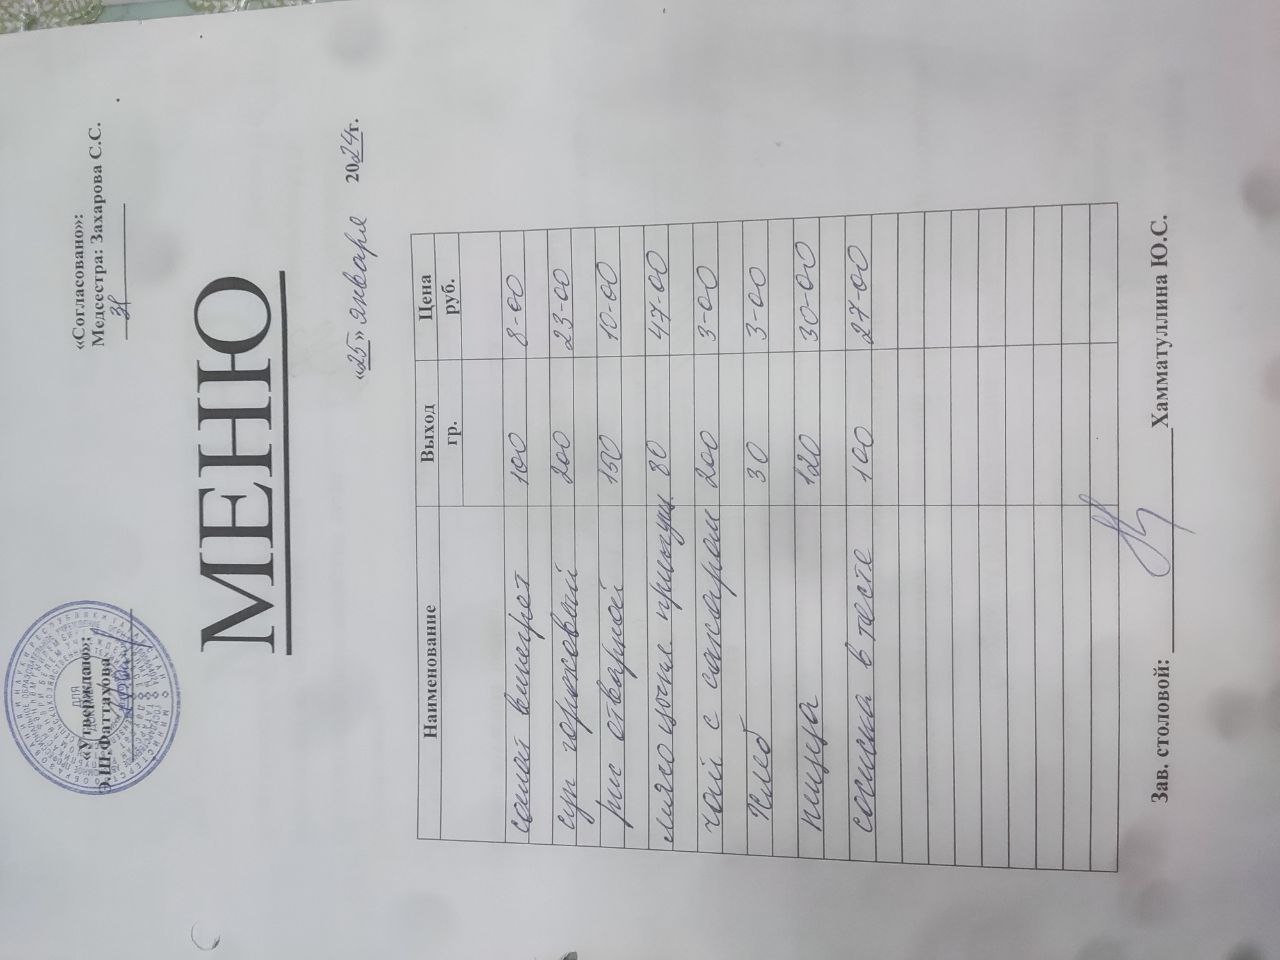 «Утверждаю»:
Э.Ш.Фаттахова
«Согласовано»:
Медсестра: Захарова С.С.
МЕНЮ
«25» января 2024г.
Наименование Выход гр. Цена руб.
салат винегрет 100 8-00
суп гороховый 200 23-00
рис отварной 150 10-00
мясо птицы припущ. 80 47-00
чай с сахаром 200 3-00
хлеб 30 3-00
пицца 120 30-00
сосиска в тесте 100 27-00
Зав. столовой: Хамматуллина Ю.С.